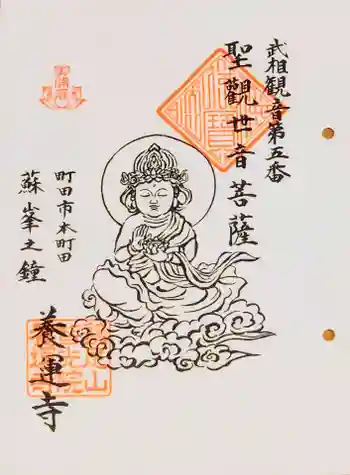 武相観音第五番
聖觀世音菩薩
町田市本町田
蘇峯之鐘
養運寺